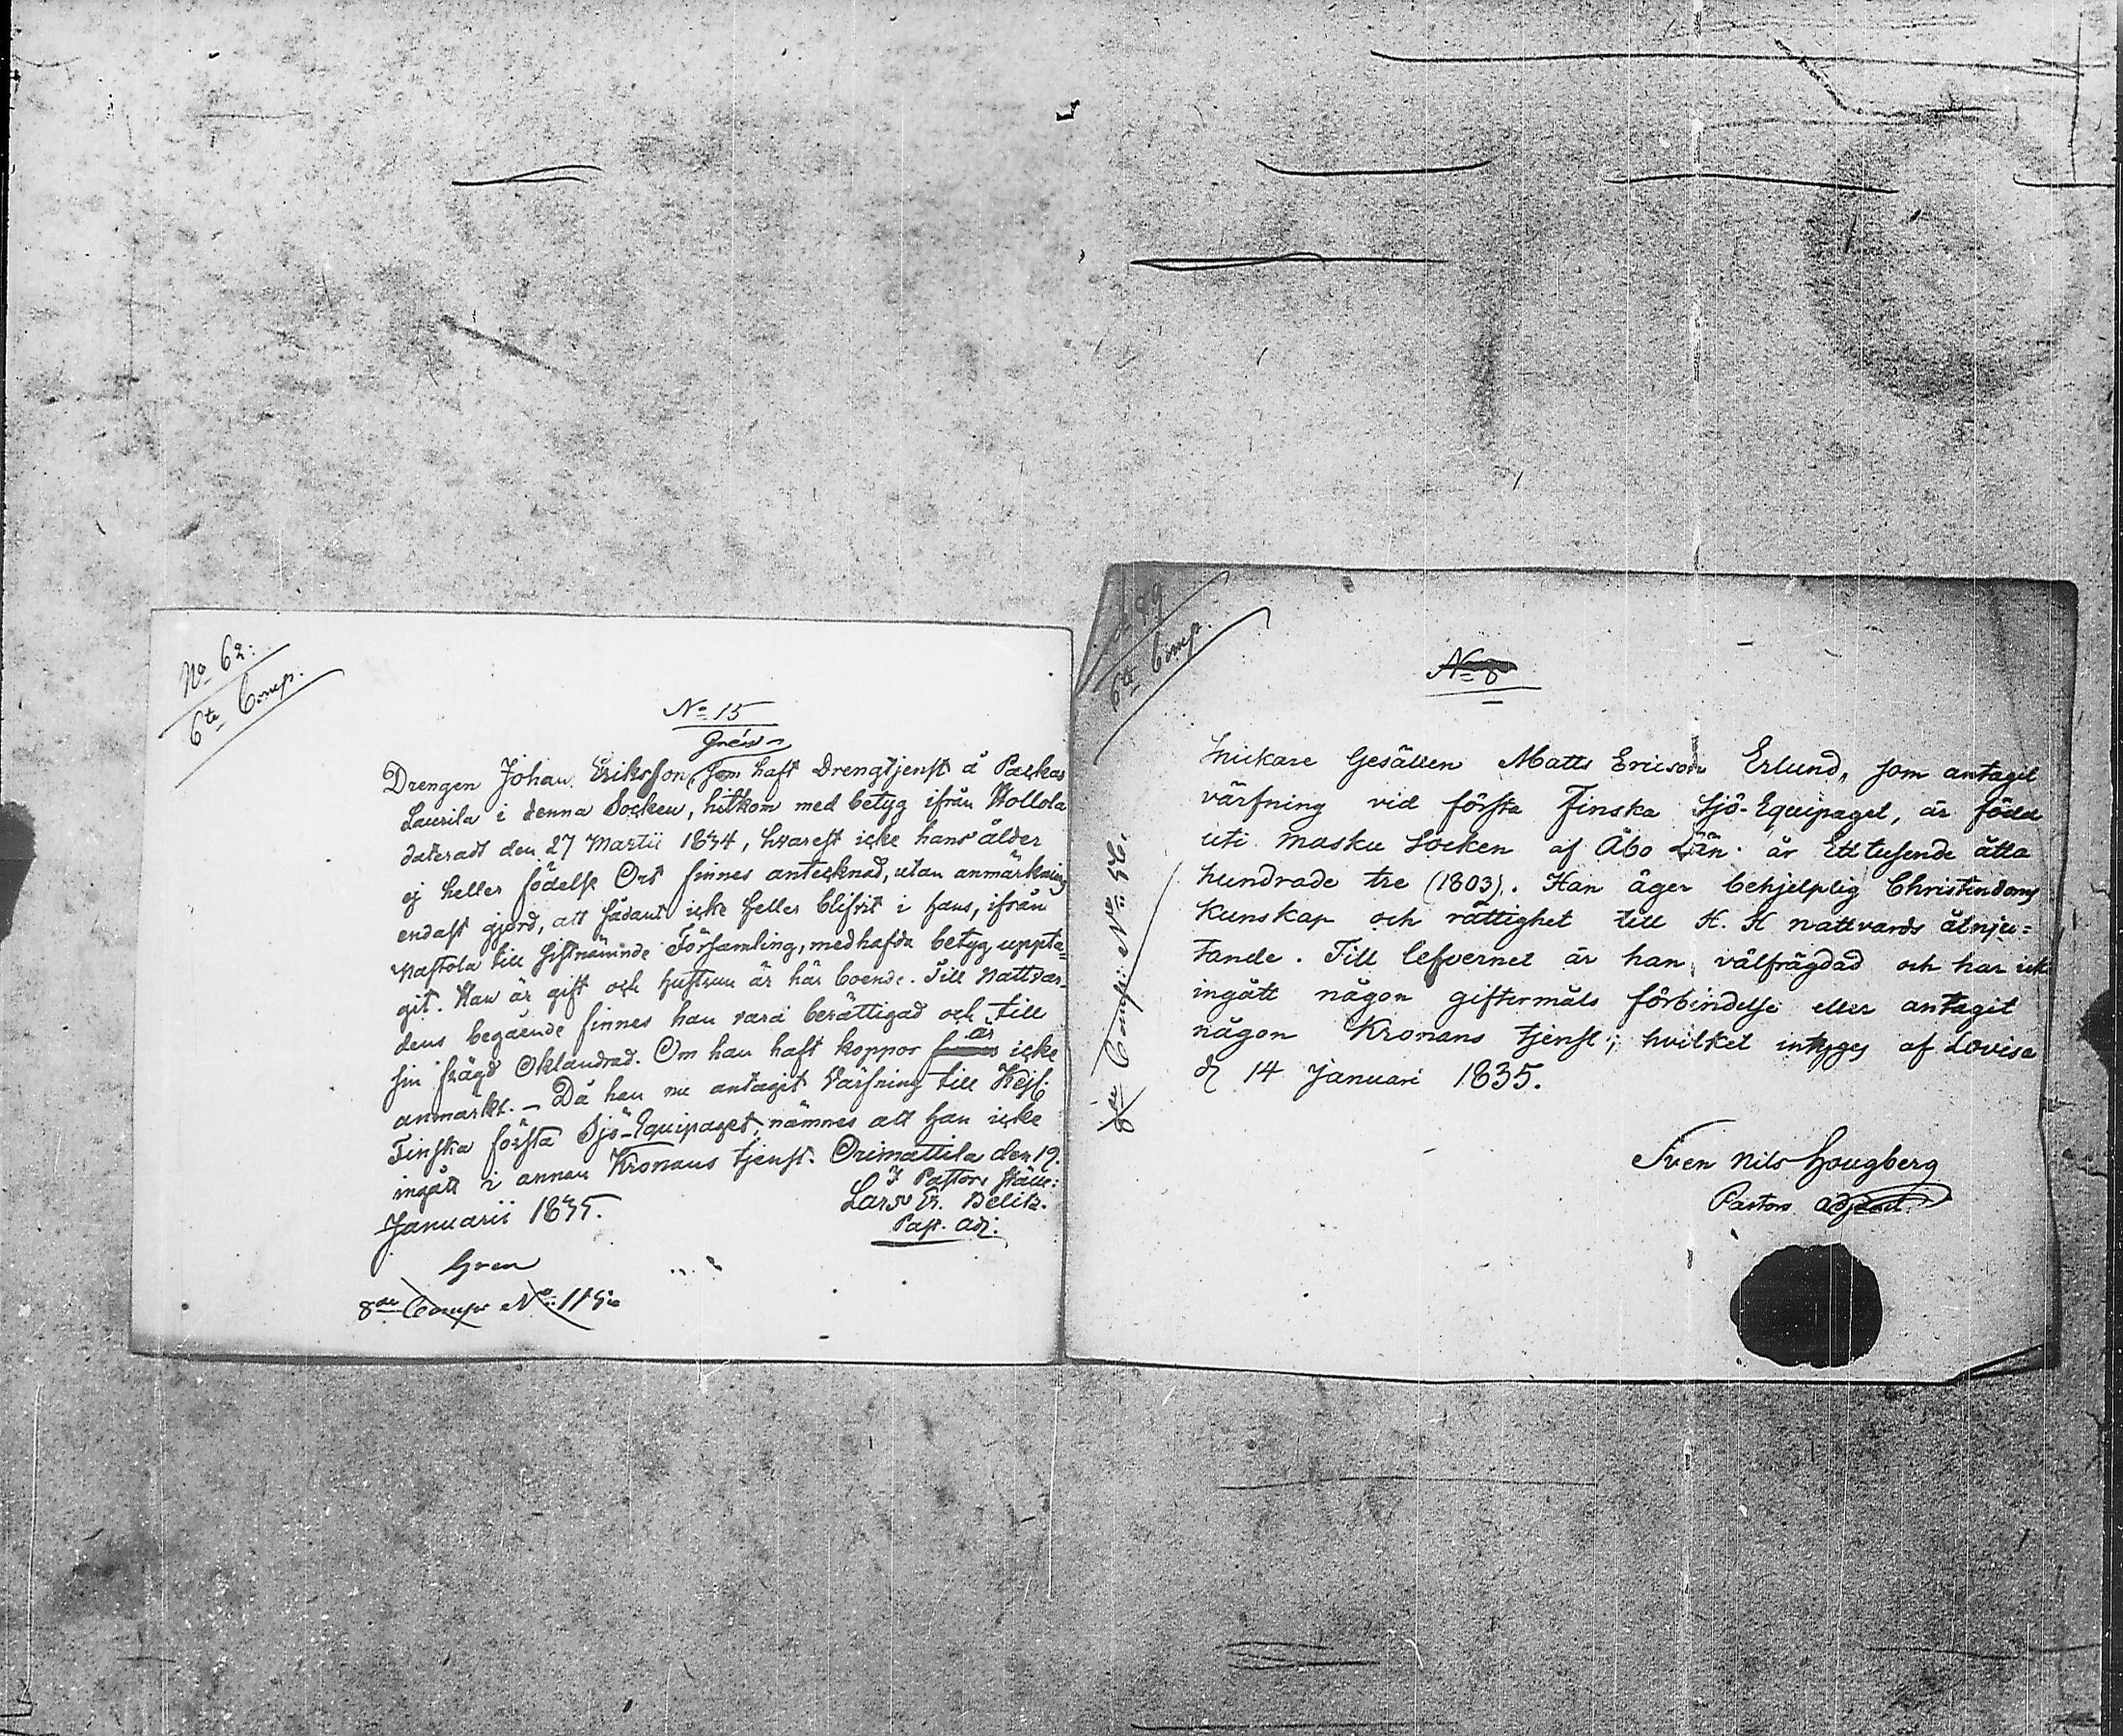 No 62:
6te Comp.
No 15
Grén
Drengen Johan Eriksson, som haft Drengtjenst å Parkas
Laurila i denna Socken, hitkom med betyg ifrån Hollola
dateradt den 27 Martii 1834, hvarest icke hans ålder
ej heller födelse Ort finnes antecknad, utan anmärkning
endast gjord, att sådant icke heller blifvit i hans, ifrån
Nastola till sistnämnde Församling, medhafda betyg uppta-
git. Han är gift och hustrun är här boende. Till Nattvar-
dens begående finnes han vara berättigad och till
sin frägd Oklandrad. Om han haft koppor är icke
anmärkt. – Då han nu antagit Värfning till Kejs:
Finska första Sjö-Equipaget, nämnes att han icke
ingått i annan Kronans tjenst. Orimattila den 19.
Januarii 1835.
I Pastors Ställe:
Lars Er. Delitz.
Past. Adj:
Gren
8de Comp No 115
189
6te Comp.
No 8
8de Comp: No 56.
Snickare Gesällen Matts Ericson Erlund, som antagit
värfning vid första Finska Sjö-Equipaget, är född
uti Masku Socken af Åbo Län år Ett tusende åtta
hundrade tre (1803). Han äger behjelplig Christendoms
kunskap och rättighet till H. H nattvards åtnju=
tande. Till lefvernet är han välfrägdad och har ick
ingått någon giftermåls förbindelse eller antagit
någon Kronans tjenst; hvilket intyges af Lovisa
d 14 Januari 1835.
Sven Nils Hougberg
Pastors adjunct.